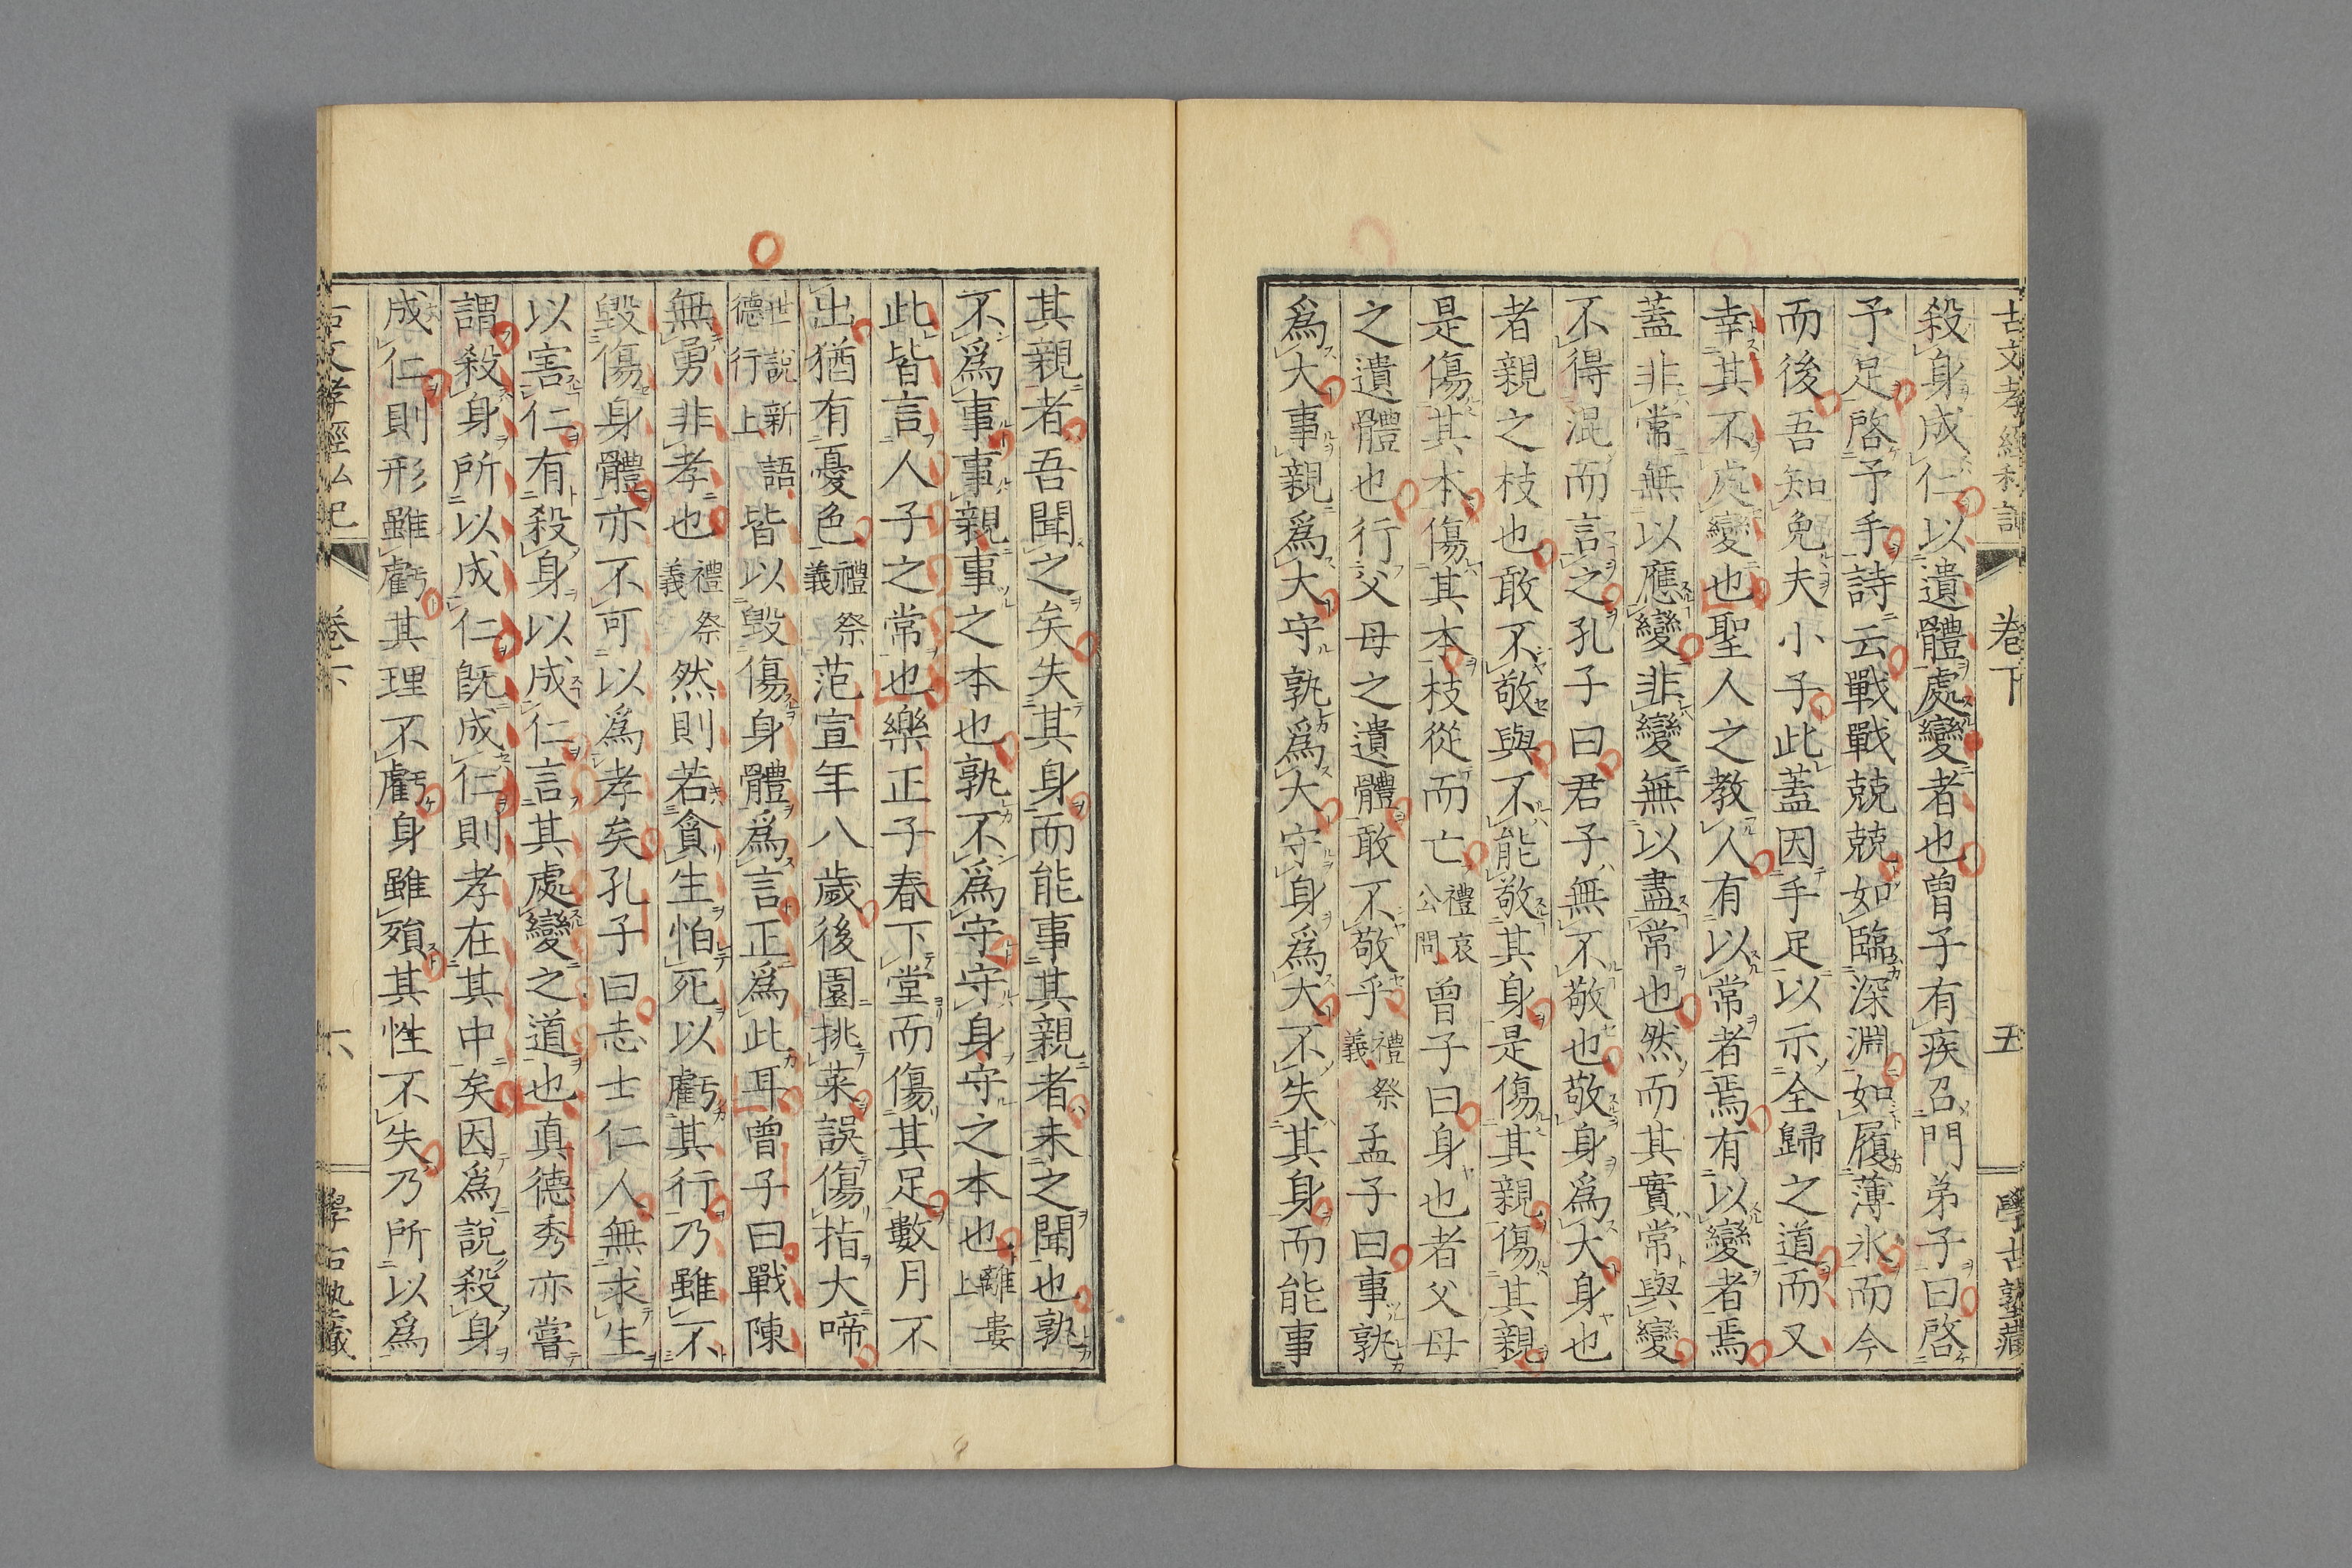 古文孝經私記 卷下 五 學古塾藏
殺身成仁以遺體處變者也曾子有疾召門弟子曰啓
予足啓予手詩云戰戰兢兢如臨深淵如履薄氷而今
而後吾知免夫小子此蓋因手足以示全歸之道而又
幸其不處變也聖人之教人有以常者焉有以變者焉
蓋非常無以應變非變無以盡常也然而其實常與變
不得混而言之孔子曰君子無不敬也敬身爲大身也
者親之枝也敢不敬與不能敬其身是傷其親傷其親
是傷其本傷其本枝從而亡禮哀公問曾子曰身也者父母
之遺體也行父母之遺體敢不敬乎禮祭義孟子曰事孰
爲大事親爲大守孰爲大守身爲大不失其身而能事
其親者吾聞之矣失其身而能事其親者未之聞也孰
不爲事事親事之本也孰不爲守守身守之本也離婁上
此皆言人子之常也樂正子春下堂而傷其足數月不
出猶有憂色禮祭義范宣年八歲後園挑菜誤傷指大啼
世說新語德行上皆以毀傷身體爲言正爲此耳曾子曰戰陳
無勇非孝也禮祭義然則若貪生怕死以虧其行乃雖不
毀傷身體亦不可以爲孝矣孔子曰志士仁人無求生
以害仁有殺身以成仁言其處變之道也真德秀亦嘗
謂殺身所以成仁既成仁則孝在其中矣因爲說殺身
成仁則形雖虧其理不虧身雖殞其性不失乃所以爲
古文孝經私記 卷下 六 學古塾藏